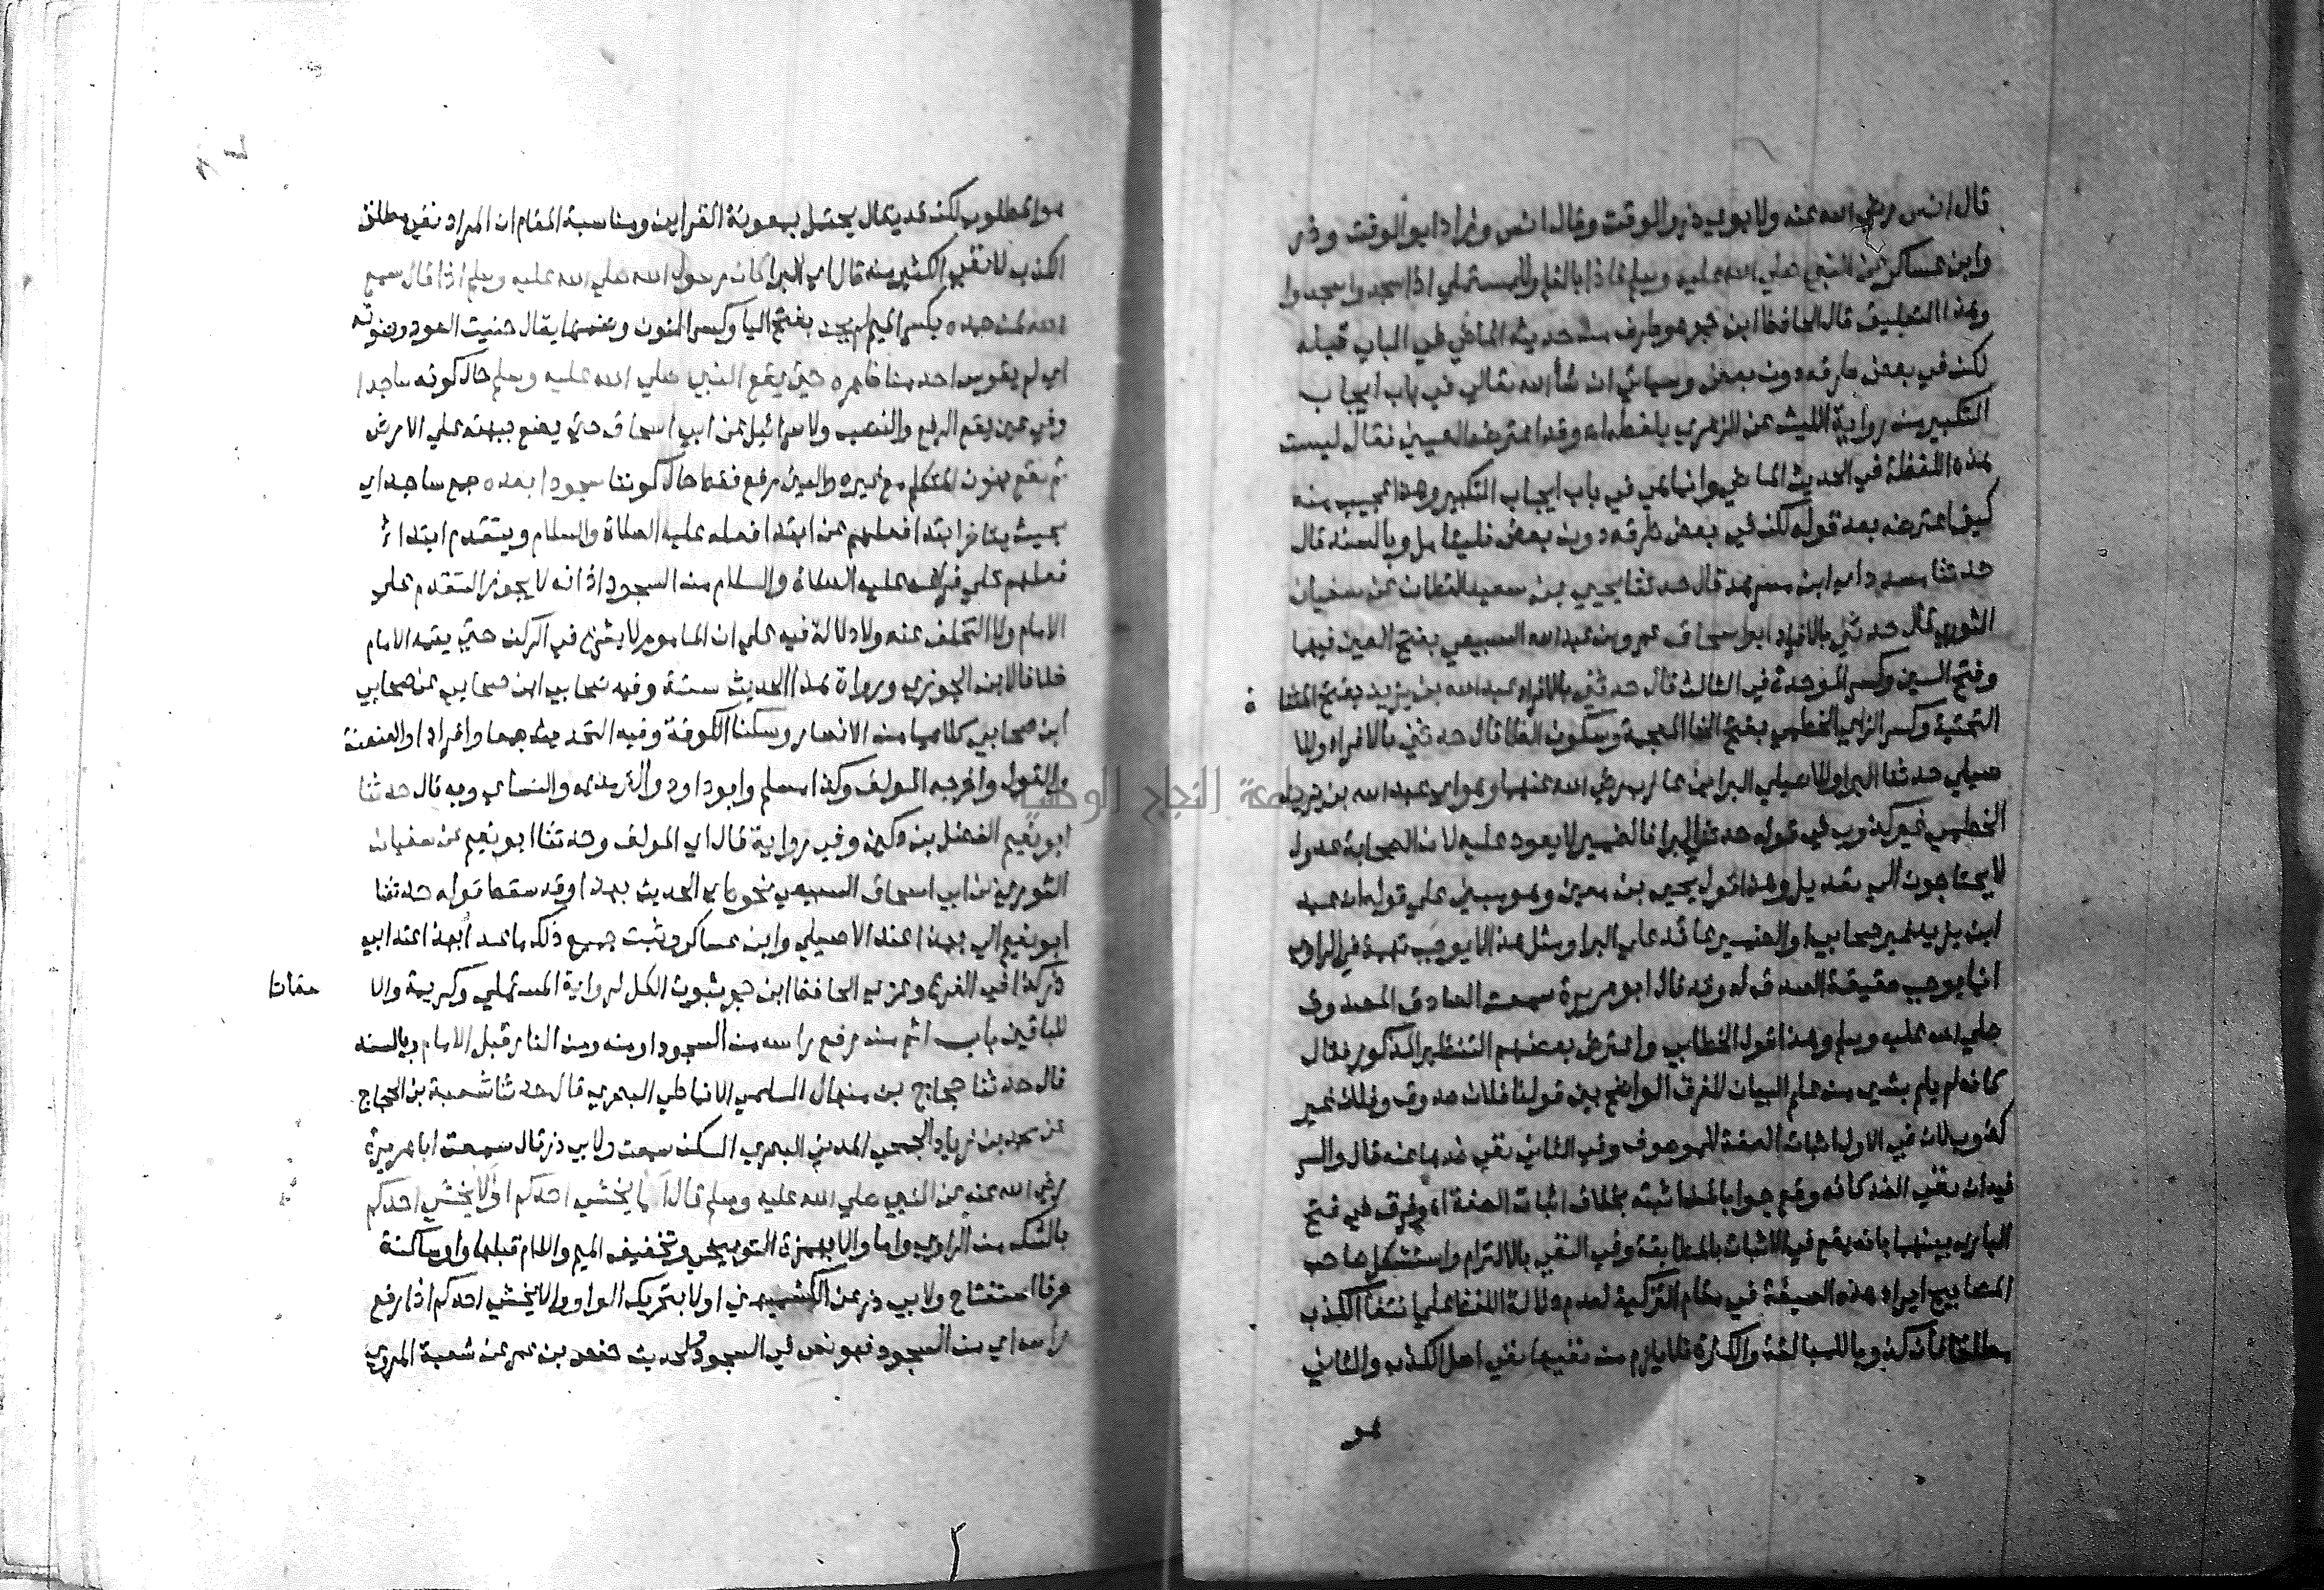 قال انس رضي الله عنه ولابوي ذر والوقت وقال انس وزاد ابو الوقت وذر
وابن عساكر عن النبي صلي الله عليه وسلم فاذا بالفا وللمستملي اذا سجد واسجدوا
وهذا التعليق قال الحافظ ابن حجر هو طرف من حديثه الماضي في الباب قبله
لكن في بعض طرقه دون بعض وسياتي ان شا الله تعالي في باب ايجاب
التكبير من رواية الليث عن الزهري بلفظه اه وقد اعترضه العيني فقال ليست
هذه اللفظة في الحديث الماضي وانما هي في باب ايجاب التكبير وهذا عجيب منه
كيف اعترضه بعد قوله لكن في بعض طرقه دون بعض فليتامل وبالسند قال
حدثنا مسدد اي ابن مسرهد قال حدثنا يحيي بن سعيد القطان عن سفيان
الثوري قال حدثني بالافراد ابو اسحاق عمرو بن عبد الله السبيعي بفتح العين فيهما
وفتح السين وكسر الموحدة في الثالث قال حدثني بالافراد عبد الله بن يزيد بفتح المثنا ة
التحتية وكسر الزاي الخطمي بفتح الخا المعجمة وسكون الطا قال حدثني بالافراد وللا
صيلي حدثنا البرا وللاصيلي البرا بن عازب رضي الله عنهما وهو اي عبد الله بن يزيد
الخطمي غير كذوب في قوله حدثني البرا فالضمير لا يعود عليه لان الصحابة عدول
لا يحتاجون الي تعديل وهذا قول يحيي بن معين وهو مبني علي قوله ان عبد
ابن يزيد غير صحابي او الضمير عائد علي البرا ومثل هذا لا يوجب تهمة في الراوي
انما يوجب حقيقة الصدق له وقد قال ابو هريرة سمعت الصادق المصدوق
صلي الله عليه وسلم وهذا قول الخطابي واعترض بعضهم التنظير المذكور فقال
كانه لم يلم بشي من علم البيان للفرق الواضح بين قولنا فلان صدوق وفلان غير
كذوب لان في الاول اثبات الصفة للموصوف وفي الثاني نفي ضدها عنه قال والسر
فيه ان نفي الضد كانه وقع جوابا لمن اثبته بخلاف اثبات الصفة اه وفرق في فتح
الباري بينهما بانه يقع في الاثبات بالمطابقة وفي النفي بالالتزام واستشكل صاحب
المصابيح ايراد هذه الصيغة في مقام التزكية لعدم دلالة اللفظ علي انتفا الكذب
مطلقا فان كذوبا للمبالغة والكثرة فلا يلزم من نفيها نفي اصل الكذب والثاني
هو
هو المطلوب لكن قد يقال يحتمل بمعونة القراين ومناسبة المقام ان المراد نفي مطلق
الكذب لا نفي الكثير منه قال اي البرا كان رسول الله صلي الله عليه وسلم اذا قال سمع
الله لمن حمده بكسر الميم لم يحن بفتح اليا وكسر النون وضمها يقال حنيت العود وحنوته
اي لم يقوس احد منا ظهره حتي يقع النبي صلي الله عليه وسلم حال كونه ساجدا
وفي عين يقع الرفع والنصب ولاسرائيل عن ابي اسحاق حتي يضع جبهته علي الارض
ثم نقع بنون المتكلم مع غيره والعين رفع فقط حال كوننا سجودا بعده جمع ساجد اي
بحيث يتاخر ابتدا فعلهم عن ابتدا فعله عليه الصلاة والسلام ويتقدم ابتدا ئ
فعلهم علي فراغه عليه الصلاة والسلام من السجود اذ انه لا يجوز التقدم علي
الامام ولا التخلف عنه ولا دلالة فيه علي ان الماموم لا يشرع في الركن حتي يتمه الامام
خلافا لابن الجوزي ورواة هذا الحديث ستة وفيه صحابي ابن صحابي عن صحابي
ابن صحابي كلاهما من الانصار وسكنا الكوفة وفيه التحديث جمعا وافرادا والعنعنة
والقول واخرجه المولف وكذا مسلم وابو داود والترمذي والنساي وبه قال حدثنا
ابو نعيم الفضل بن دكين وفي رواية قال اي المولف وحدثنا ابو نعيم عن سفيان
الثوري عن ابي اسحاق السبيعي نحوه اي الحديث بهذا وقد سقط قوله حدثنا
ابو نعيم الي بهذا عند الاصيلي وابن عساكر وثبت جميع ذلك ما عدا بهذا عند ابي
ذر كذا في الفرع وعزي الحافظ ابن حجر ثبوت الكل لرواية المستملي وكريمة والا سقاط
للباقين باب اثم من رفع راسه من السجود او منه ومن الركوع قبل الامام وبالسند
قال حدثنا حجاج بن منهال السلمي الانماطي البصري قال حدثنا شعبة بن الحجاج
عن محمد بن زياد الجمحي المدني البصري السكن سمعت ولابي ذر قال سمعت ابا هريرة
رضي الله عنه عن النبي صلي الله عليه وسلم قال اما يخشي احدكم او الا يخشي احدكم
بالشك من الراوي واما والا بهمزة التوبيخ وتخفيف الميم واللام قبلها واو ساكنة
حرفا استفتاح ولابي ذر عن الكشميهني اولا بتحريك الواو والا يخشي احدكم اذا رفع
راسه اي من السجود فهو نص في السجود لحديث حفص بن عمر عن شعبة المروي